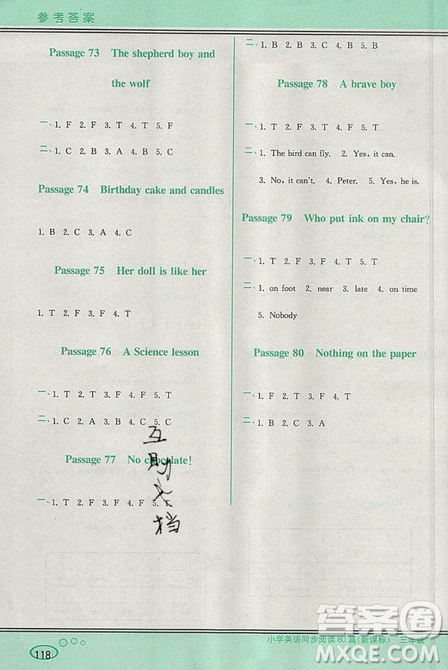 参考答案
Passage 73 The shepherd boy and
the wolf
一、1. F 2. F 3. T 4. T 5. F
二、1. C 2. B 3. A 4. C 5. B
Passage 74 Birthday cake and candles
1. B 2. C 3. A 4. C
Passage 75 Her doll is like her
1. T 2. F 3. F 4. T
Passage 76 A Science lesson
一、1. T 2. F 3. T 4. F 5. T
二、1. C 2. A 3. B 4. C 5. C
Passage 77 No chocolate!
一、1. T 2. F 3. F 4. F 5. T
互助文档
二、1. B 2. B 3. C 4. B 5. B
Passage 78 A brave boy
一、1. F 2. F 3. F 4. T 5. T
二、1. The bird can fly. 2. Yes, it can.
3. No, it can't. 4. Peter. 5. Yes, he is.
Passage 79 Who put ink on my chair?
一、1. T 2. F 3. F 4. F 5. T
二、1. on foot 2. near 3. late 4. on time
5. Nobody
Passage 80 Nothing on the paper
一、1. T 2. F 3. T 4. F 5. T
二、1. B 2. C 3. A
小学英语同步阅读80篇(新课标) 三年级
118
MXQE.COM